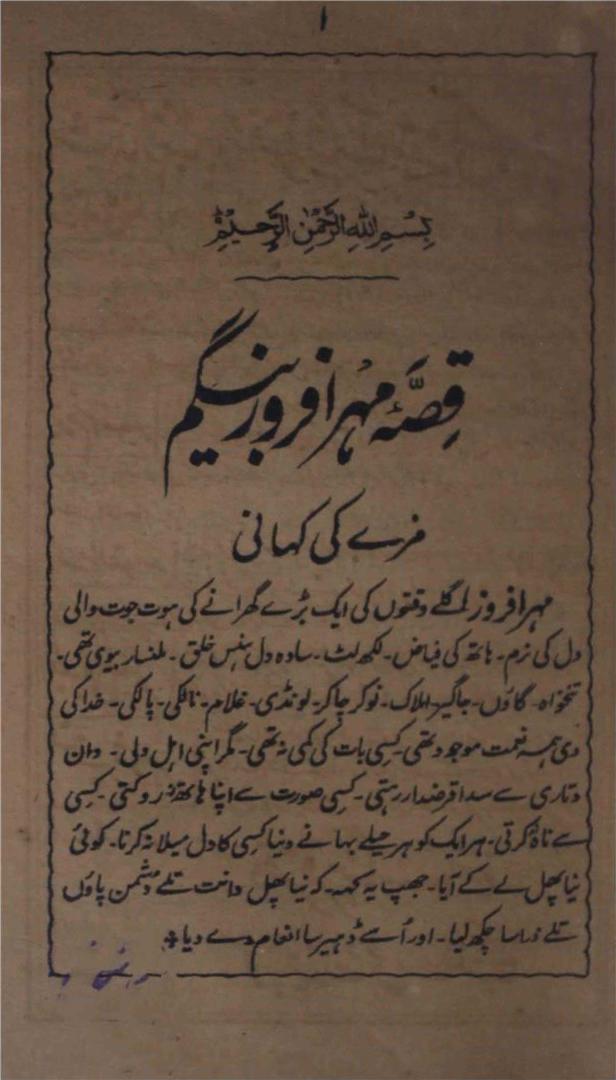 ۱
بِسْمِ اللّٰهِ الرَّحْمٰنِ الرَّحِیْمِ
قِصَّۂ مہر افروز بیگم
مزے کی کہانی
مہر افروز اگلے وقتوں کی ایک بڑے گھرانے کی ہوت جوت والی
دل کی نرم۔ ہاتھ کی فیاض۔ لکھ لٹ۔ سادہ دل ہنس خلق۔ ملنسار بیوی تھی۔
تنخواہ۔ گاؤں۔ جاگیر۔ املاک۔ نوکر چاکر۔ لونڈی۔ غلام۔ نالکی۔ پالکی۔ خدا کی
دی ہمہ نعمت موجود تھی۔ کسی بات کی کمی نہ تھی۔ مگر اپنی اہل دلی۔ دان
وتاری سے سدا قرضدار رہتی۔ کسی صورت سے اپنا ہاتھ نہ روکتی۔ کسی
سے نا نہ کرتی۔ ہر ایک کو ہر حیلے بہانے دینا کسی کا دل میلا نہ کرنا۔ کوئی
نیا پھل لے کے آیا۔ جھپ یہ کہہ۔ کہ نیا پھل دانت تلے دشمن پاؤں
تلے ذرا سا چکھ لیا۔ اور اُسے ڈھیر سا انعام دے دیا٭